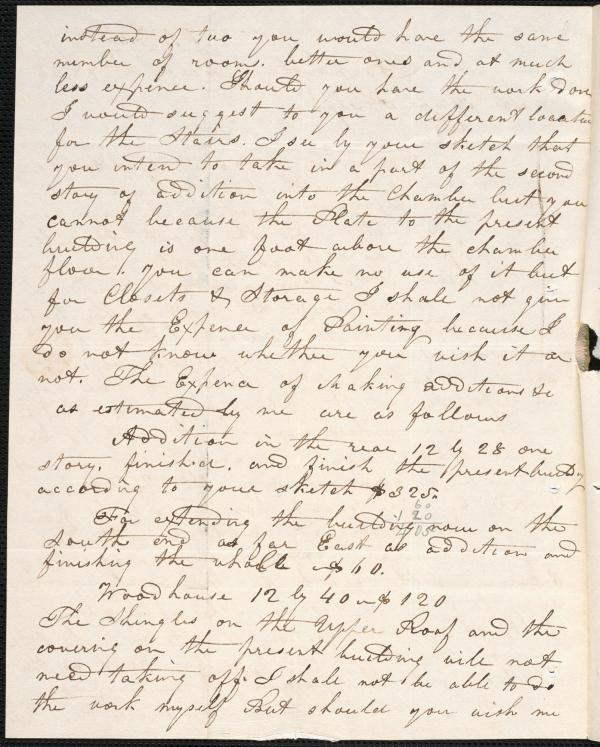 instead of two you would have the same
number of rooms. better ones and at much
less expence. Should you have the work done
I would suggest to you a different location
for the Stairs. I see by your sketch that
you intend to take in a part of the second
story of addition into the Chamber but you
cannot because the Plate to the present
building is one foot above the chamber
floor. you can make no use of it but
for Closets & Storage I shall not give
you the Expence of Painting because I
do not know whether you wish it or
not. The Expence of Making additions &c
as estimated by me are as follows
Addition in the rear 12 by 28 one
story. finished. and finish the present buildg
according to your sketch $325.
60
120
505
For extending the building now on the
South end as far East as addition and
finishing the whole $60.
Woodhouse 12 by 40 $120
The Shingles on the Upper Roof and the
covering on the present building will not
need taking off. I shall not be able to do
the work myself But should you wish me